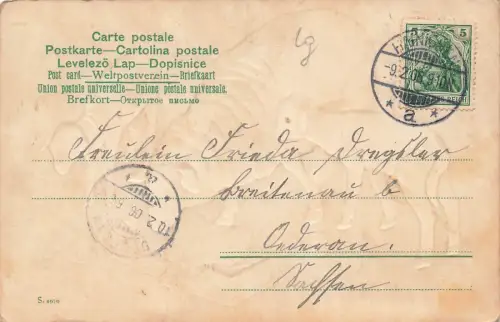 Carte postale
Postkarte—Cartolina postale
Levelező Lap—Dopisnice
Post card—Weltpostverein—Briefkaart
Union postale universelle—Unione postale universale.
Brefkort—Открытое письмо
lg
5
-9.2.06
* a *
Fräulein Frieda Dregsler
Breitenau b
Oederan.
Sachsen
10.2.06
S. 4919